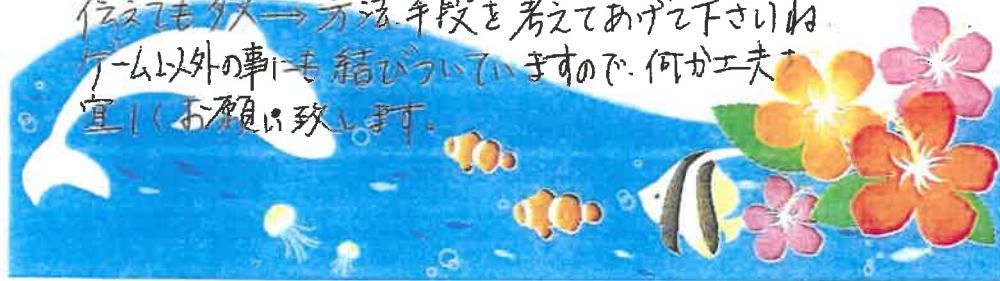 伝えてもダメ→方法、手段を考えてあげて下さいね
ゲーム以外の事にも結びついていますので、何か工夫
宜しくお願い致します。